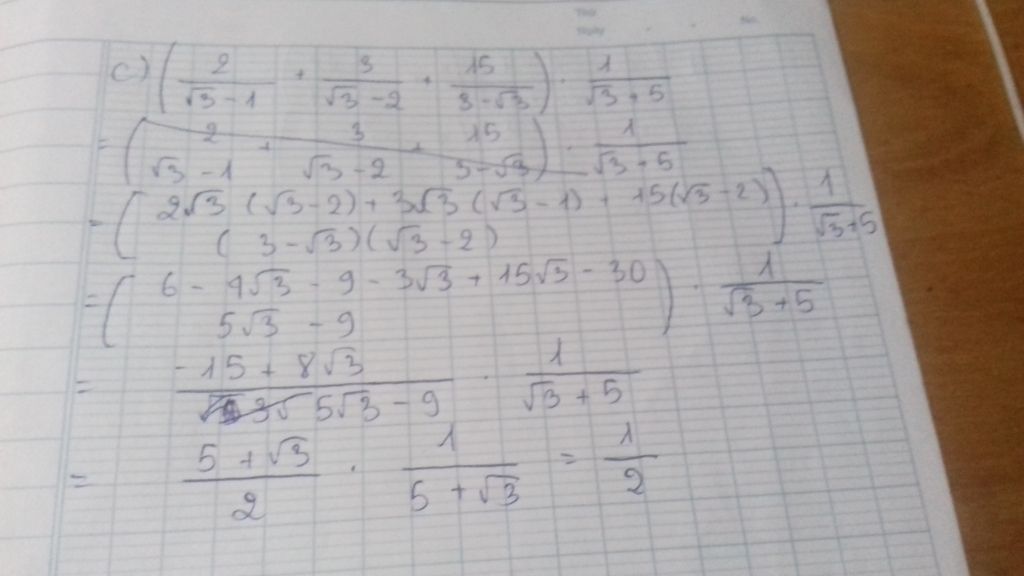 c) (2/(√3 - 1) + 3/(√3 - 2) + 15/(3 - √3)) · 1/(√3 + 5)
= (2/(√3 - 1) + 3/(√3 - 2) + 15/(3 - √3)) · 1/(√3 + 5)
= ((2√3 (√3 - 2) + 3√3 (√3 - 1) + 15(√3 - 2))/((3 - √3)(√3 - 2))) · 1/(√3 + 5)
= ((6 - 4√3 - 9 - 3√3 + 15√3 - 30)/(5√3 - 9)) · 1/(√3 + 5)
= (-15 + 8√3)/(5√3 - 9) · 1/(√3 + 5)
= (5 + √3)/2 · 1/(5 + √3) = 1/2